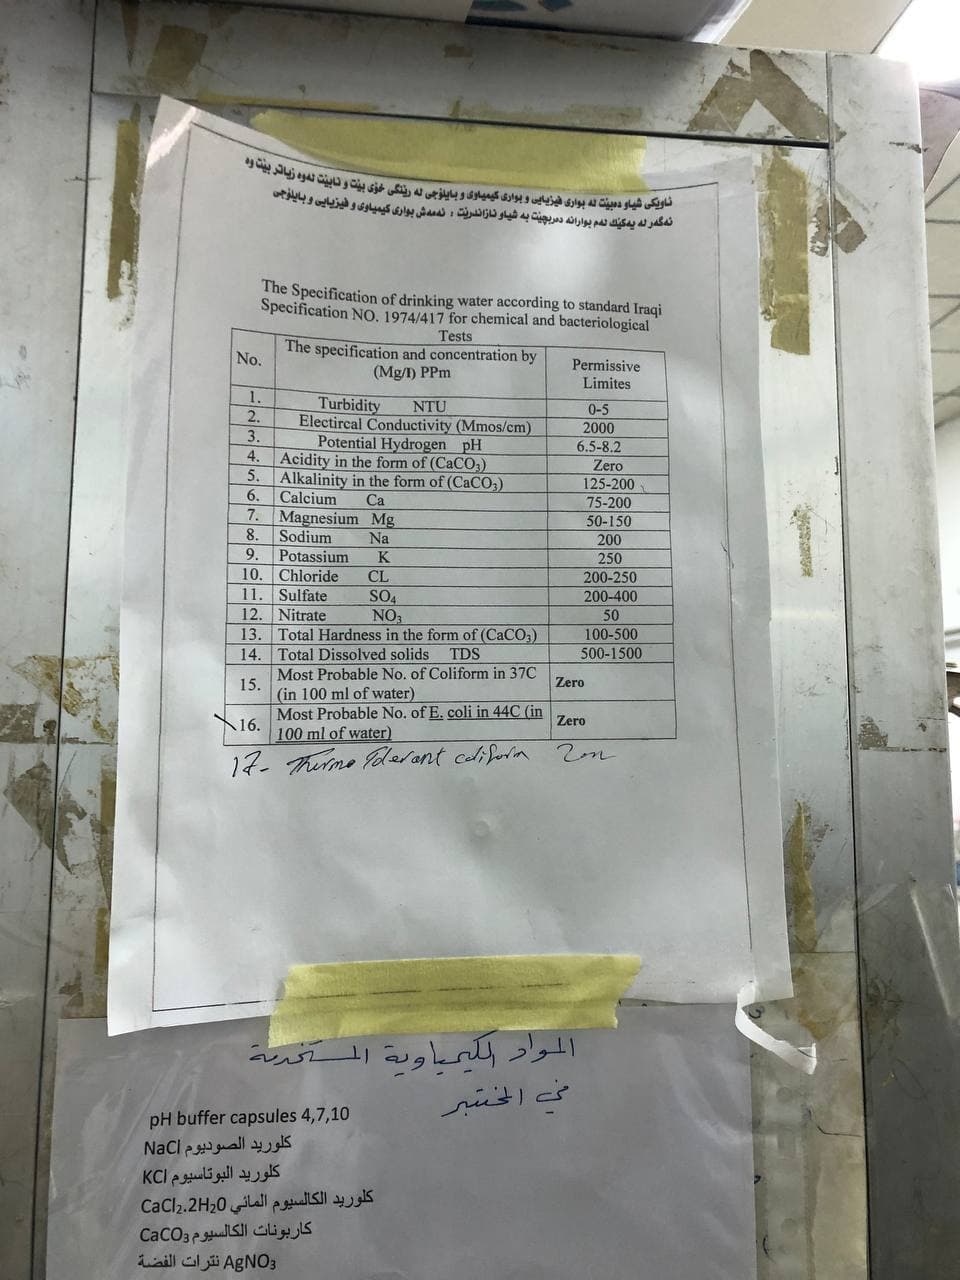 ئاویکی شیاو دەبێت لە بواری فیزیایی و بواری کیمیاوی و بایلۆجی لە رێنگی خۆی بێت و نابێت لەوە زیاتر بێت وە
ئەگەر لە یەکێك لەم بوارانە دەربچێت بە شیاو نازاندرێت ، ئەمەش بواری کیمیاوی و فیزیایی و بایلۆجی
The Specification of drinking water according to standard Iraqi
Specification NO. 1974/417 for chemical and bacteriological
Tests
No. The specification and concentration by (Mg/l) PPm Permissive Limites
1. Turbidity NTU 0-5
2. Electircal Conductivity (Mmos/cm) 2000
3. Potential Hydrogen pH 6.5-8.2
4. Acidity in the form of (CaCO₃) Zero
5. Alkalinity in the form of (CaCO₃) 125-200
6. Calcium Ca 75-200
7. Magnesium Mg 50-150
8. Sodium Na 200
9. Potassium K 250
10. Chloride CL 200-250
11. Sulfate SO₄ 200-400
12. Nitrate NO₃ 50
13. Total Hardness in the form of (CaCO₃) 100-500
14. Total Dissolved solids TDS 500-1500
15. Most Probable No. of Coliform in 37C (in 100 ml of water) Zero
16. Most Probable No. of E. coli in 44C (in 100 ml of water) Zero
17- Thermo tolerant coliform
المواد الكيمياوية المستخدمة
في المختبر
pH buffer capsules 4,7,10
كلوريد الصوديوم NaCl
كلوريد البوتاسيوم KCl
كلوريد الكالسيوم المائي CaCl₂.2H₂0
كاربونات الكالسيوم CaCO₃
نترات الفضة AgNO₃